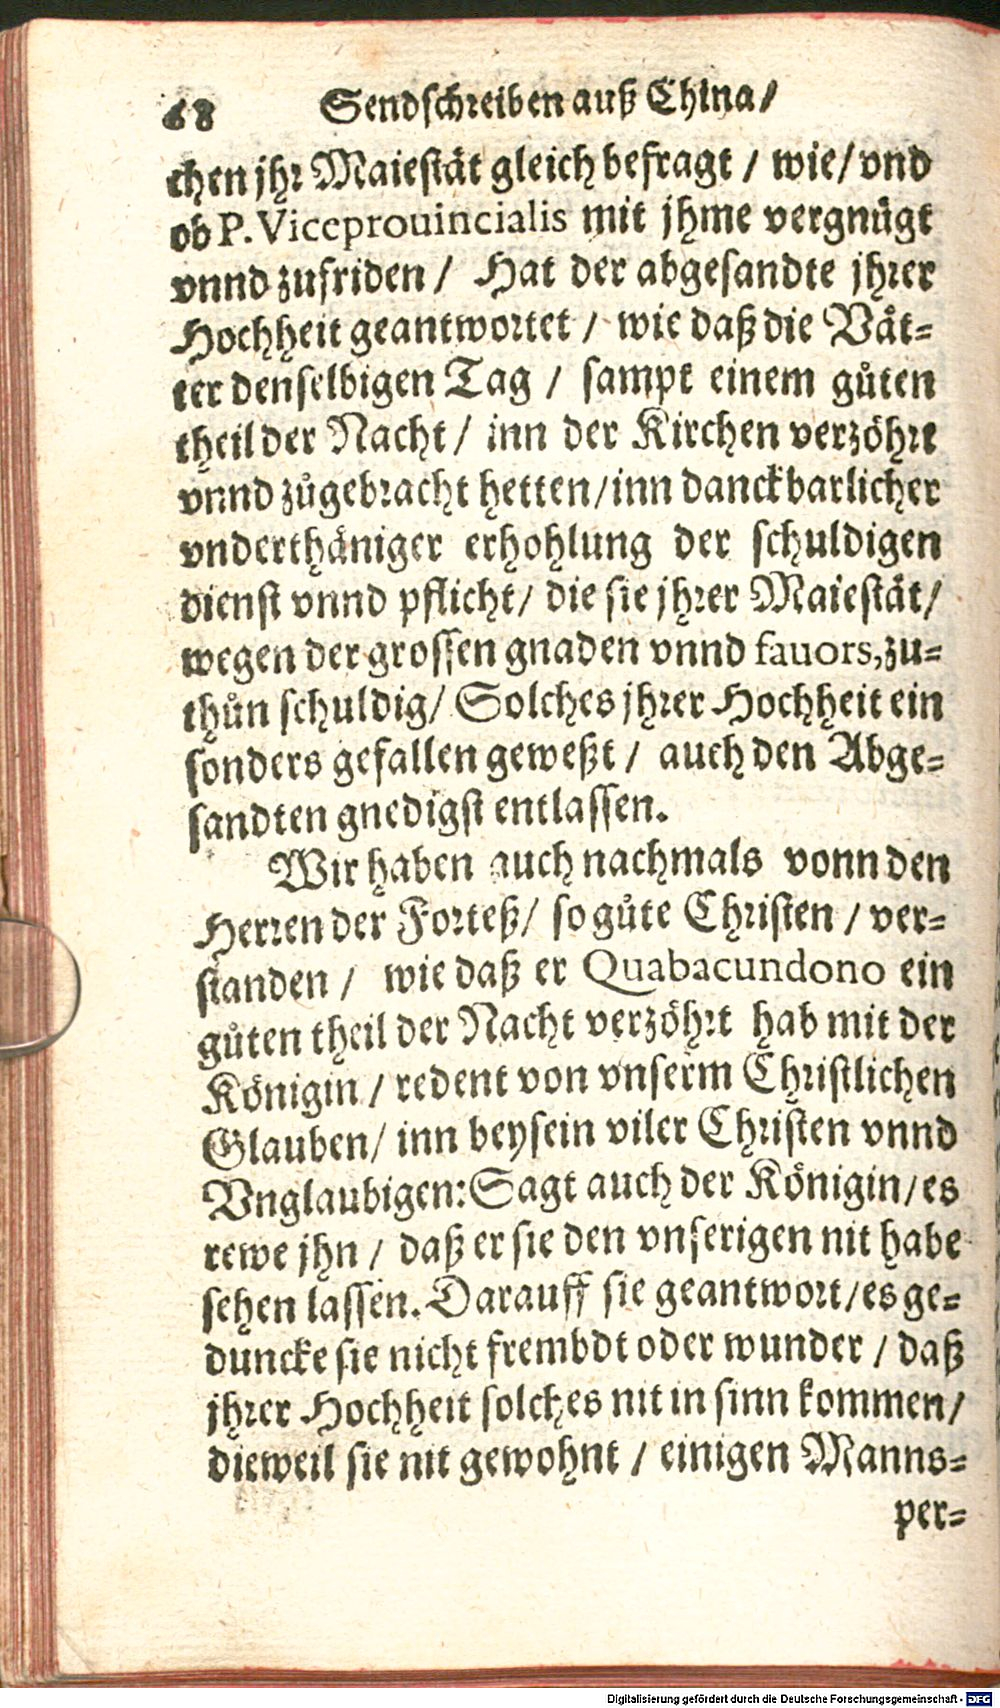 68 Sendschreiben auß China/
chen jhr Maiestät gleich befragt / wie/ vnd
ob P. Viceprouincialis mit jhme vergnügt
vnnd zufriden / Hat der abgesandte jhrer
Hochheit geantwortet / wie daß die Vät-
ter denselbigen Tag / sampt einem gůten
theil der Nacht / inn der Kirchen verzöhrt
vnnd zůgebracht hetten/inn danckbarlicher
vnderthäniger erhohlung der schuldigen
dienst vnnd pflicht/ die sie jhrer Maiestät/
wegen der grossen gnaden vnnd fauors, zu-
thůn schuldig/ Solches jhrer Hochheit ein
sonders gefallen geweßt / auch den Abge-
sandten gnedigst entlassen.
Wir haben auch nachmals vonn den
Herren der Forteß/ so gůte Christen / ver-
standen / wie daß er Quabacundono ein
gůten theil der Nacht verzöhrt hab mit der
Königin / redent von vnserm Christlichen
Glauben/ inn beysein viler Christen vnnd
Vnglaubigen: Sagt auch der Königin/ es
rewe jhn / daß er sie den vnserigen nit habe
sehen lassen. Darauff sie geantwort/es ge-
duncke sie nicht frembdt oder wunder / daß
jhrer Hochheit solches nit in sinn kommen/
dieweil sie nit gewohnt / einigen Manns-
per-
Digitalisierung gefördert durch die Deutsche Forschungsgemeinschaft - DFG